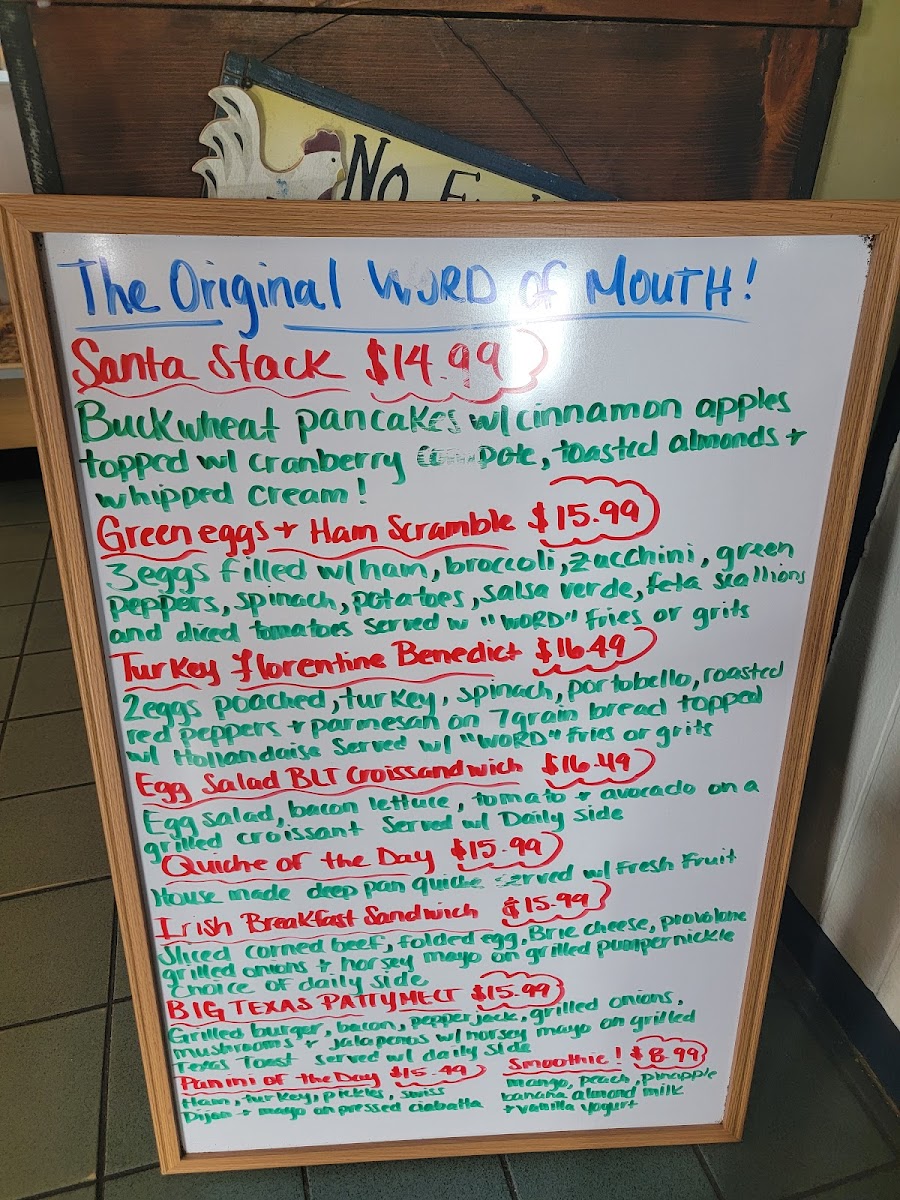 No
The Original WORD of MOUTH!
Santa Stack $14.99
Buckwheat pancakes w/cinnamon apples
topped w/ cranberry toasted almonds +
whipped cream!
Green eggs + Ham Scramble $15.99
3eggs filled w/ham, broccoli, zucchini, green
peppers, spinach, potatoes, salsa verde, feta scallions
and diced tomatoes served w "WORD" fries or grits
Turkey Florentine Benedict $16.49
2eggs poached, turkey, spinach, portobello, roasted
red peppers + parmesan on 7grain bread topped
w/ Hollandaise Served w/ "WORD" fries or grits
Egg Salad BLT Croissandwich $16.49
Egg salad, bacon lettuce, tomato + avocado on a
grilled croissant Served w/ Daily side
Quiche of the Day $15.99
House made deep pan quiche served w/ Fresh Fruit
Irish Breakfast Sandwich $15.99
Sliced corned beef, folded egg, Brie cheese, provolone
grilled onions + horsey mayo on grilled pumpernickle
Choice of daily side
BIG TEXAS PATTYMELT $15.99
Grilled burger, bacon, pepperjack, grilled onions,
mushrooms + Jalapenos w/ horsey mayo on grilled
Texas Toast served w/ daily side
Panini of the Day $15.49
Ham, turkey, pickles, swiss
Dijon + mayo on pressed ciabatta
Smoothie! $8.99
mango, peach, pinapple
banana almond milk
+ vanilla yogurt